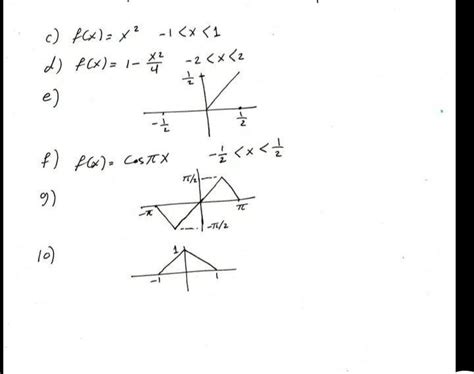 c) f(x) = x² -1 < x < 1
d) f(x) = 1 - x²/4 -2 < x < 2
e) 1/2
-1/2 1/2
f) f(x) = cos πx -1/2 < x < 1/2
g) π/2
-π π
-π/2
10) 1
-1 1